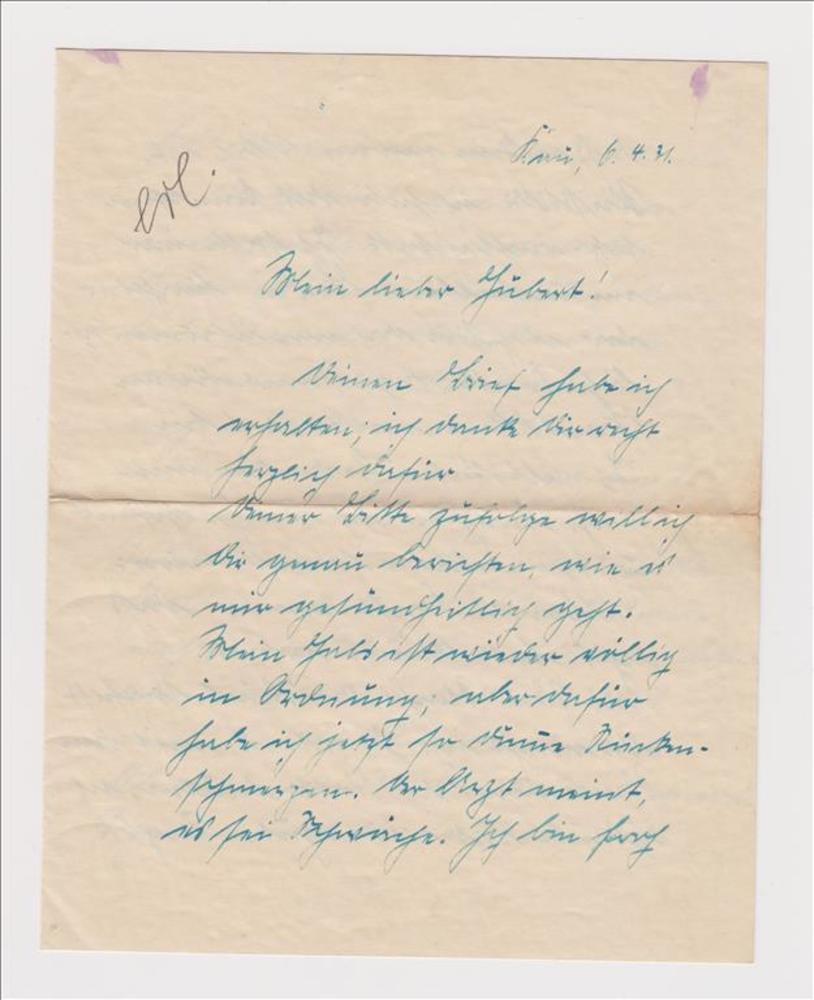 Kau, 6. 4. 31.
erl.
Mein lieber Hubert!
Deinen Brief habe ich
erhalten; ich danke Dir recht
herzlich dafür
Deiner Bitte zufolge will ich
Dir genau berichten, wie es
mir gesundheitlich geht.
Mein Hals ist wieder völlig
in Ordnung, aber dafür
habe ich jetzt so dumme Rücken-
schmerzen. Der Arzt meint,
es sei Schwäche. Ich bin